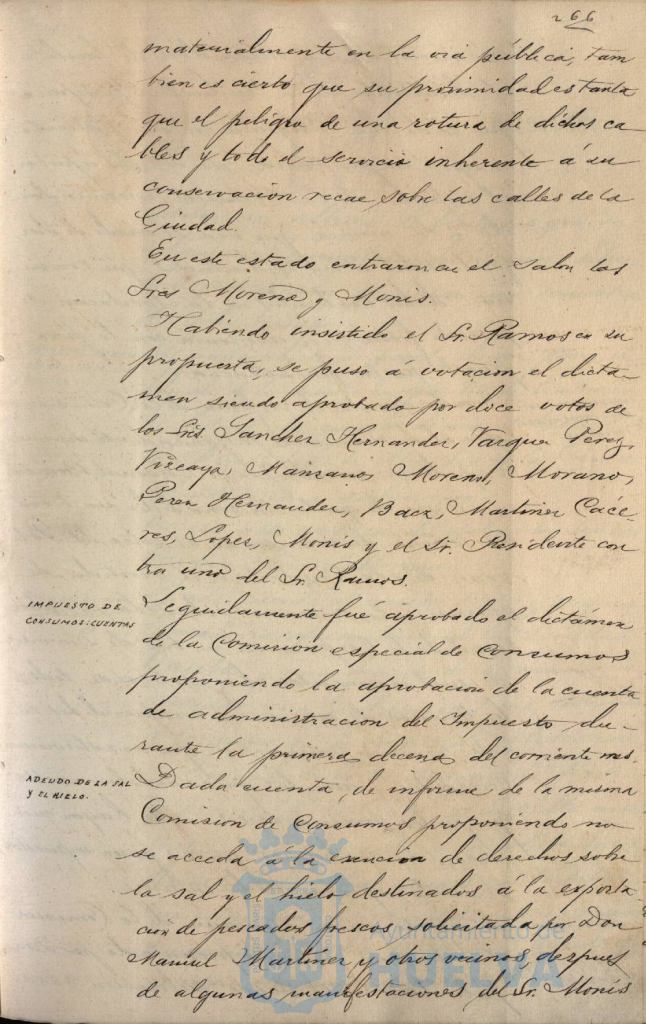 266
materialmente en la via pública, tam
bien es cierto que su proximidad es tanta
que el peligro de una rotura de dichos ca
bles y todo el servicio inherente á su
conservacion recae sobre las calles de la
Ciudad.
En este estado entraron en el salon los
Sres Moreno y Monis.
Habiendo insistido el Sr. Ramos en su
propuesta, se puso á votacion el dicta-
men siendo aprobado por doce votos de
los Sres. Sanchez Hernandez, Vazquez Perez,
Vizcaya, Manzano, Moreno, Morano,
Perez Hernandez, Baez, Martinez Cáce-
res, Lopez, Monis y el Sr. Presidente con
tra uno del Sr. Ramos.
IMPUESTO DE
CONSUMOS: CUENTAS
Seguidamente fué aprobado el dictámen
de la Comision especial de Consumos
proponiendo la aprobacion de la cuenta
de administracion del Impuesto du-
rante la primera decena del corriente mes.
ADEUDO DE LA SAL
Y EL HIELO.
Dada cuenta, de informe de la misma
Comision de Consumos proponiendo no
se acceda á la exencion de derechos sobre
la sal y el hielo destinados á la exporta
cion de pescados frescos, solicitada por Don
Manuel Martinez y otros vecinos, despues
de algunas manifestaciones del Sr. Monis
Ayuntamiento de
HUELVA